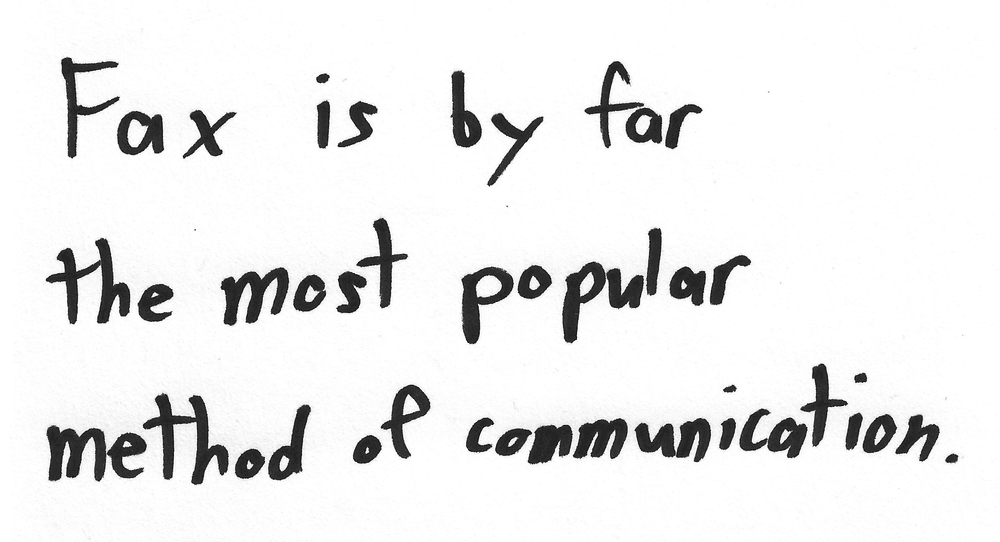 Fax is by far
the most popular
method of communication.